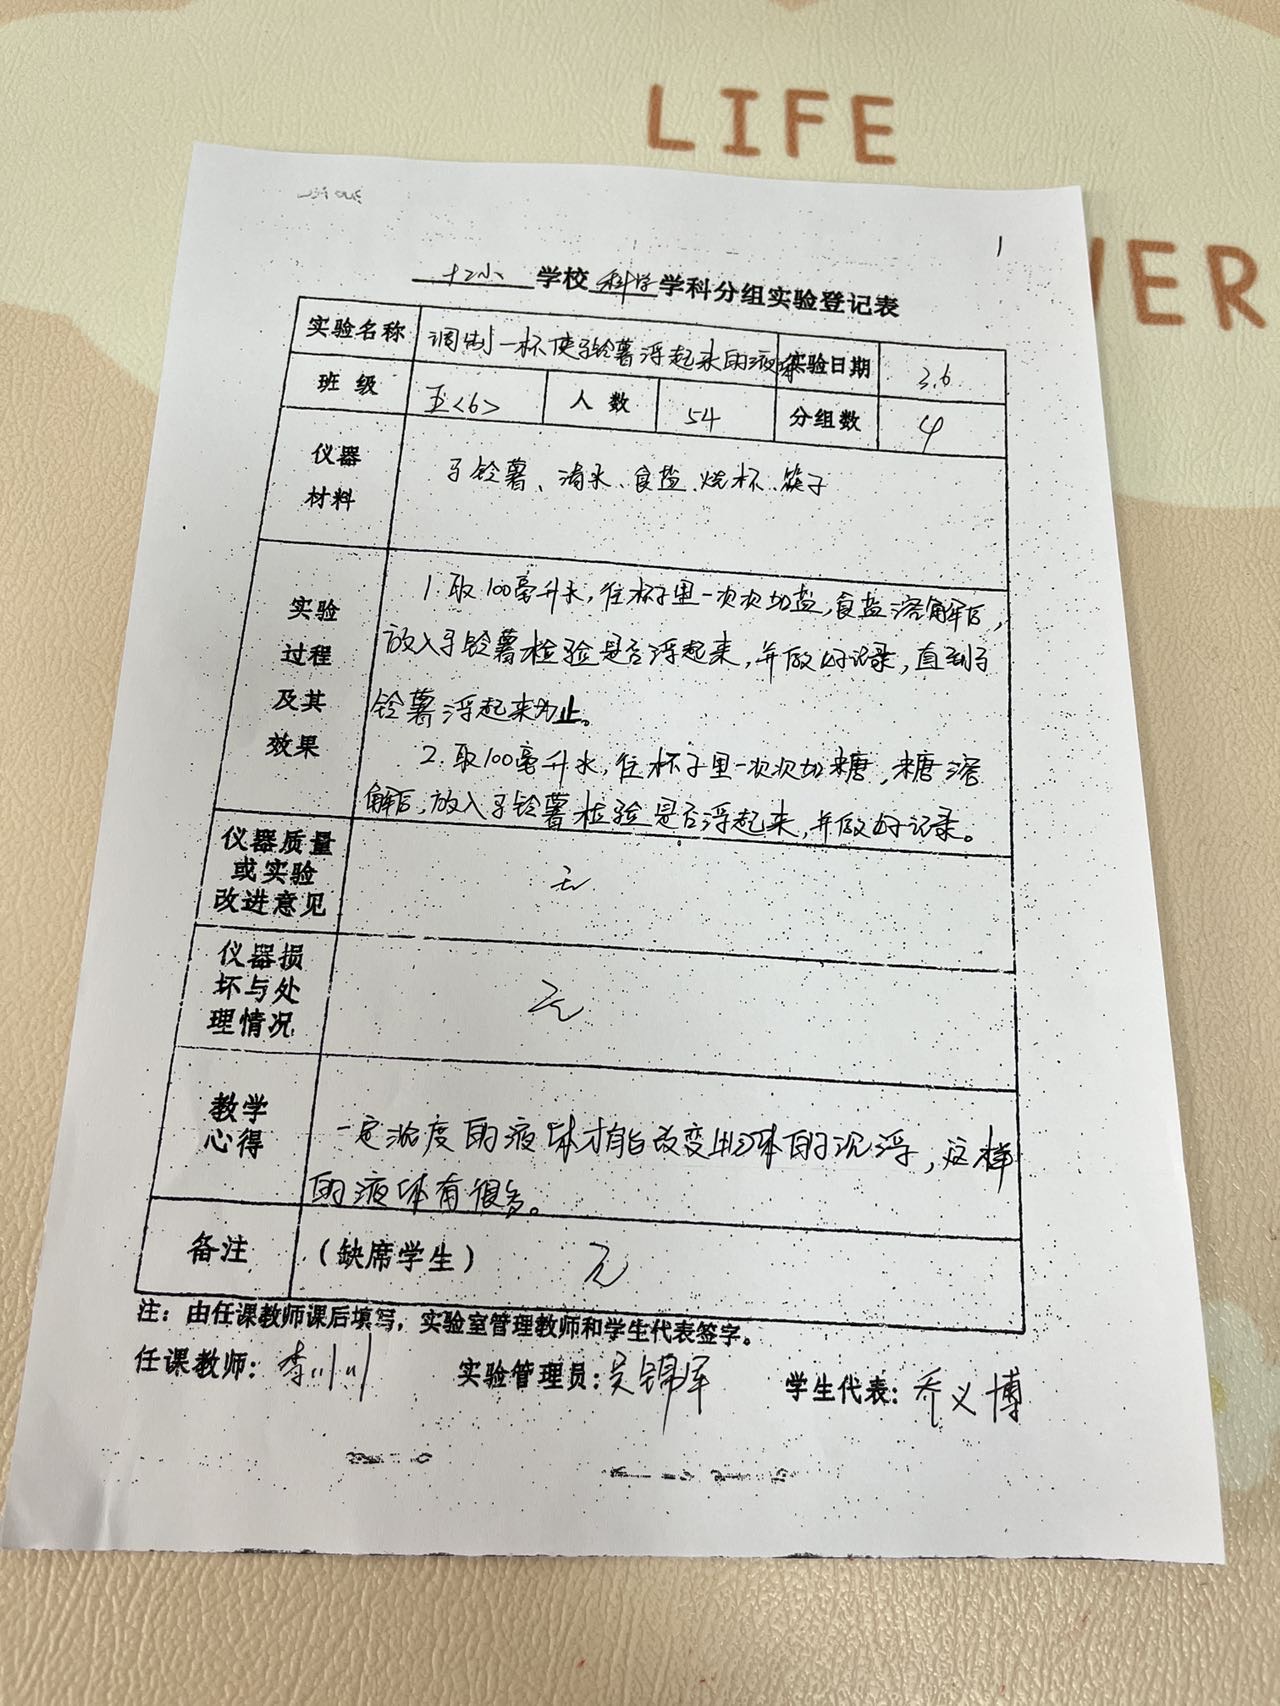 LIFE
VER
1
十二小学校科学学科分组实验登记表
实验名称 调制一杯使马铃薯浮起来的液体 实验日期 3.6
班级 五<6> 人数 54 分组数 4
仪器
材料
马铃薯、清水、食盐、烧杯、筷子
实验
过程
及其
效果
1.取100毫升水,往杯子里一次次加盐,食盐溶解后,
放入马铃薯检验是否浮起来,并做好记录,直到马
铃薯浮起来为止。
2.取100毫升水,往杯子里一次次加糖,糖溶
解后,放入马铃薯检验是否浮起来,并做好记录。
仪器质量
或实验
改进意见
无
仪器损
坏与处
理情况
无
教学
心得
一定浓度的液体才能改变物体的沉浮,这样
的液体有很多。
备注 (缺席学生) 无
注:由任课教师课后填写,实验室管理教师和学生代表签字。
任课教师: 李 实验管理员:吴锦军 学生代表:乔义博